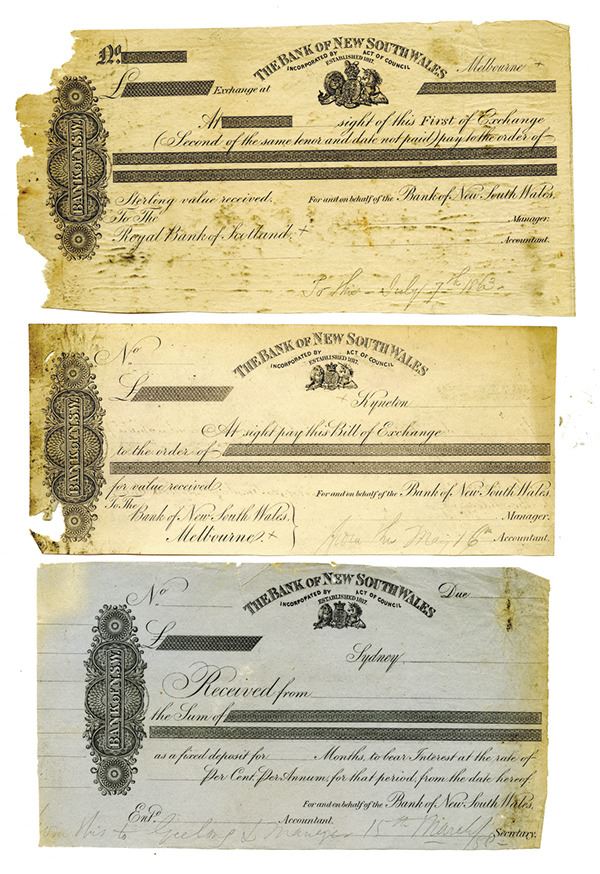 No.
THE BANK OF NEW SOUTH WALES
INCORPORATED BY ACT OF COUNCIL
ESTABLISHED 1817.
Melbourne +
£ Exchange at
At sight of this First of Exchange
(Second of the same tenor and date not paid) pay to the order of
BANK OF N.S.W.
Sterling value received. For and on behalf of the Bank of New South Wales.
To The Manager.
Royal Bank of Scotland. + Accountant.
To this - July 7th 1863.
No
THE BANK OF NEW SOUTH WALES
INCORPORATED BY ACT OF COUNCIL
ESTABLISHED 1817.
£
+ Kyneton
At sight pay this Bill of Exchange
to the order of
BANK OF N.S.W.
for value received. For and on behalf of the Bank of New South Wales.
To The
Bank of New South Wales, Manager.
Melbourne + May 16th Accountant.
No
THE BANK OF NEW SOUTH WALES
INCORPORATED BY ACT OF COUNCIL
ESTABLISHED 1817.
Due
£
Sydney,
Received from
the Sum of
BANK OF N.S.W.
as a fixed deposit for Months, to bear Interest at the rate of
Per Cent, Per Annum, for that period, from the date hereof.
For and on behalf of the Bank of New South Wales.
Entd. Accountant. Secretary.
this to Geelong & Manager 15th March